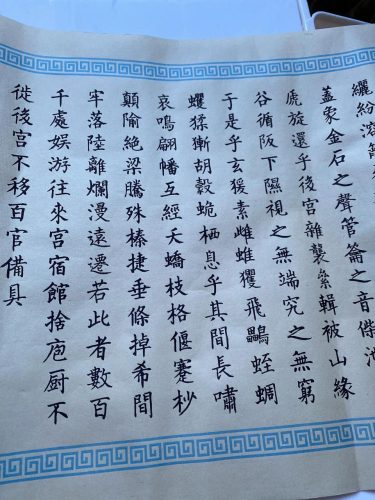 纚紛溶
蓋象金石之聲管籥之音偨池
虒旋還乎後宮雜襲絫輯被山緣
谷循阪下隰視之無端究之無窮
于是乎玄猨素雌蜼玃飛鸓蛭蜩
蠼猱獑胡縠蛫栖息乎其間長嘯
哀鳴翩幡互經夭蟜枝格偃蹇杪
顛隃絕梁騰殊榛捷垂條掉希間
牢落陸離爛漫遠遷若此者數百
千處娛游往來宮宿館捨庖厨不
徙後宮不移百官備具